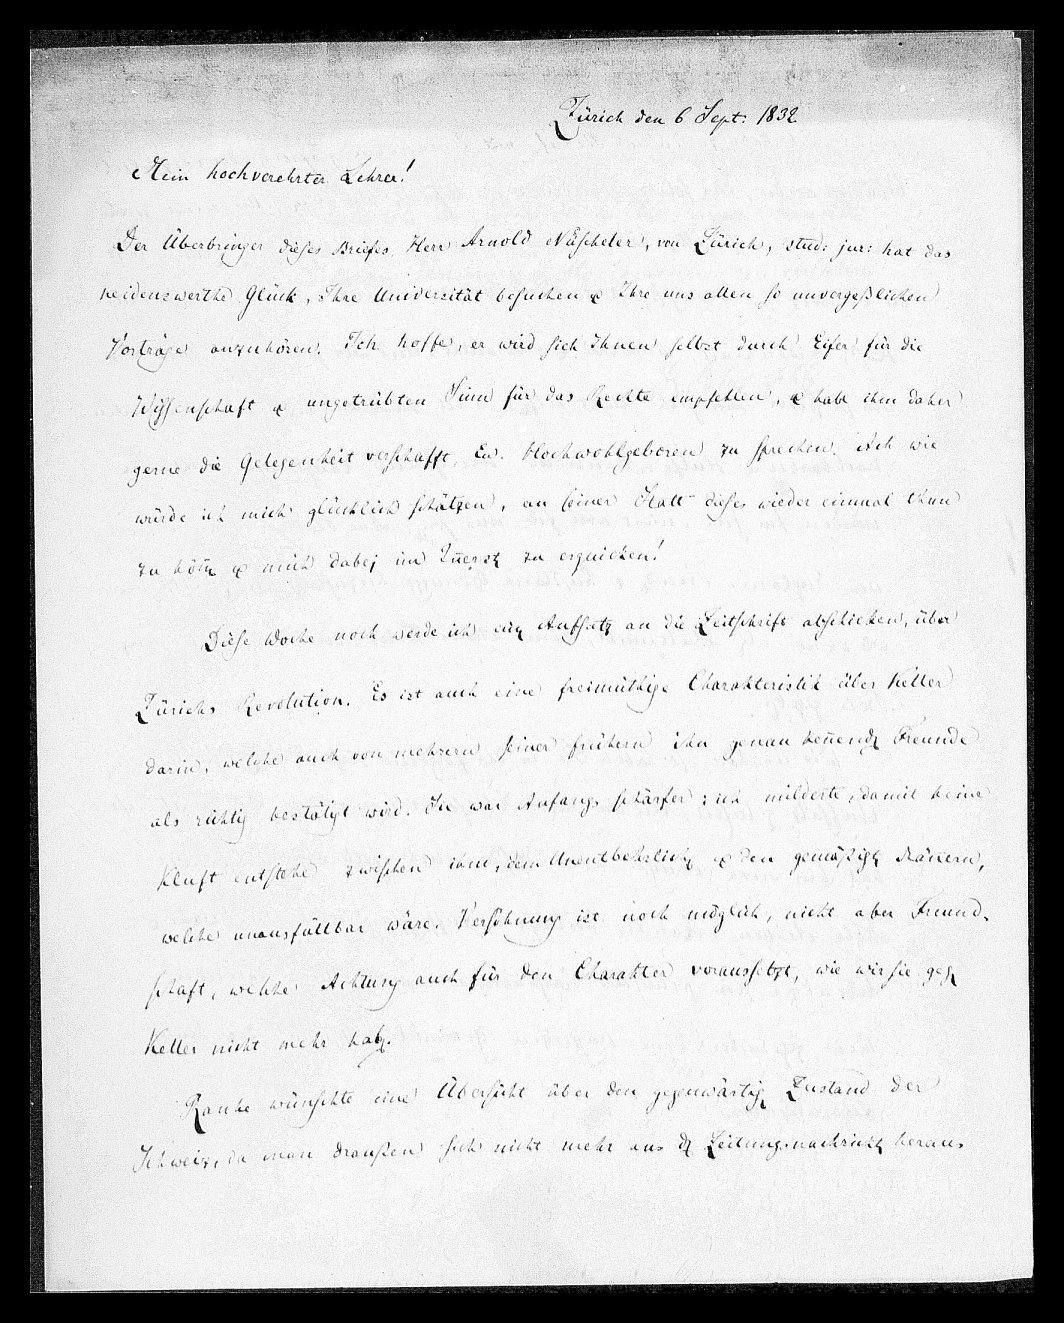 Zürich den 6 Sept: 1832
Mein hochverehrter Lehrer!
Der Überbringer dieses Briefes Herr Arnold Nüscheler, von Zürich, stud: jur: hat das
neidenswerthe Glück, Ihre Universität besuchen & Ihre uns allen so unvergeßlichen
Vorträge anzuhören. Ich hoffe, er wird sich Ihnen selbst durch Eifer für die
Wissenschaft & ungetrübten Sinn für das Rechte empfehlen, & habe ihm daher
gerne die Gelegenheit verschafft Ew. Hochwohlgeboren zu sprechen. Ach wie
würde ich mich glücklich schätzen, an seiner Statt dieses wieder einmal thun
zu köñ & mich dabej im zu erquicken!
Diese Woche noch werde ich ein Aufsatz an die Zeitschrift abschicken, über
Zürichs Revolution. Es ist auch eine freimüthige Charakteristik über Keller
darin, welche auch von mehrern seiner frühern ihn genau keñend Freunde
als richtig bestätigt wird. Sie war Anfangs schärfer; ich milderte, damit keine
Kluft entstehe zwischen ihm, dem Unentbehrlich & den gemäßigt Mäñern,
welche unausfüllbar wäre. Versöhnung ist noch möglich, nicht aber Freund-
schaft, welche Achtung auch für den Charakter voraussetzt, wie wir sie geg
Keller nicht mehr hab.
Ranke wünschte eine Übersicht über den gegenwärtig Zustand der
Schweiz, da man draußen sich nicht mehr aus d Zeitungsnachricht heraus